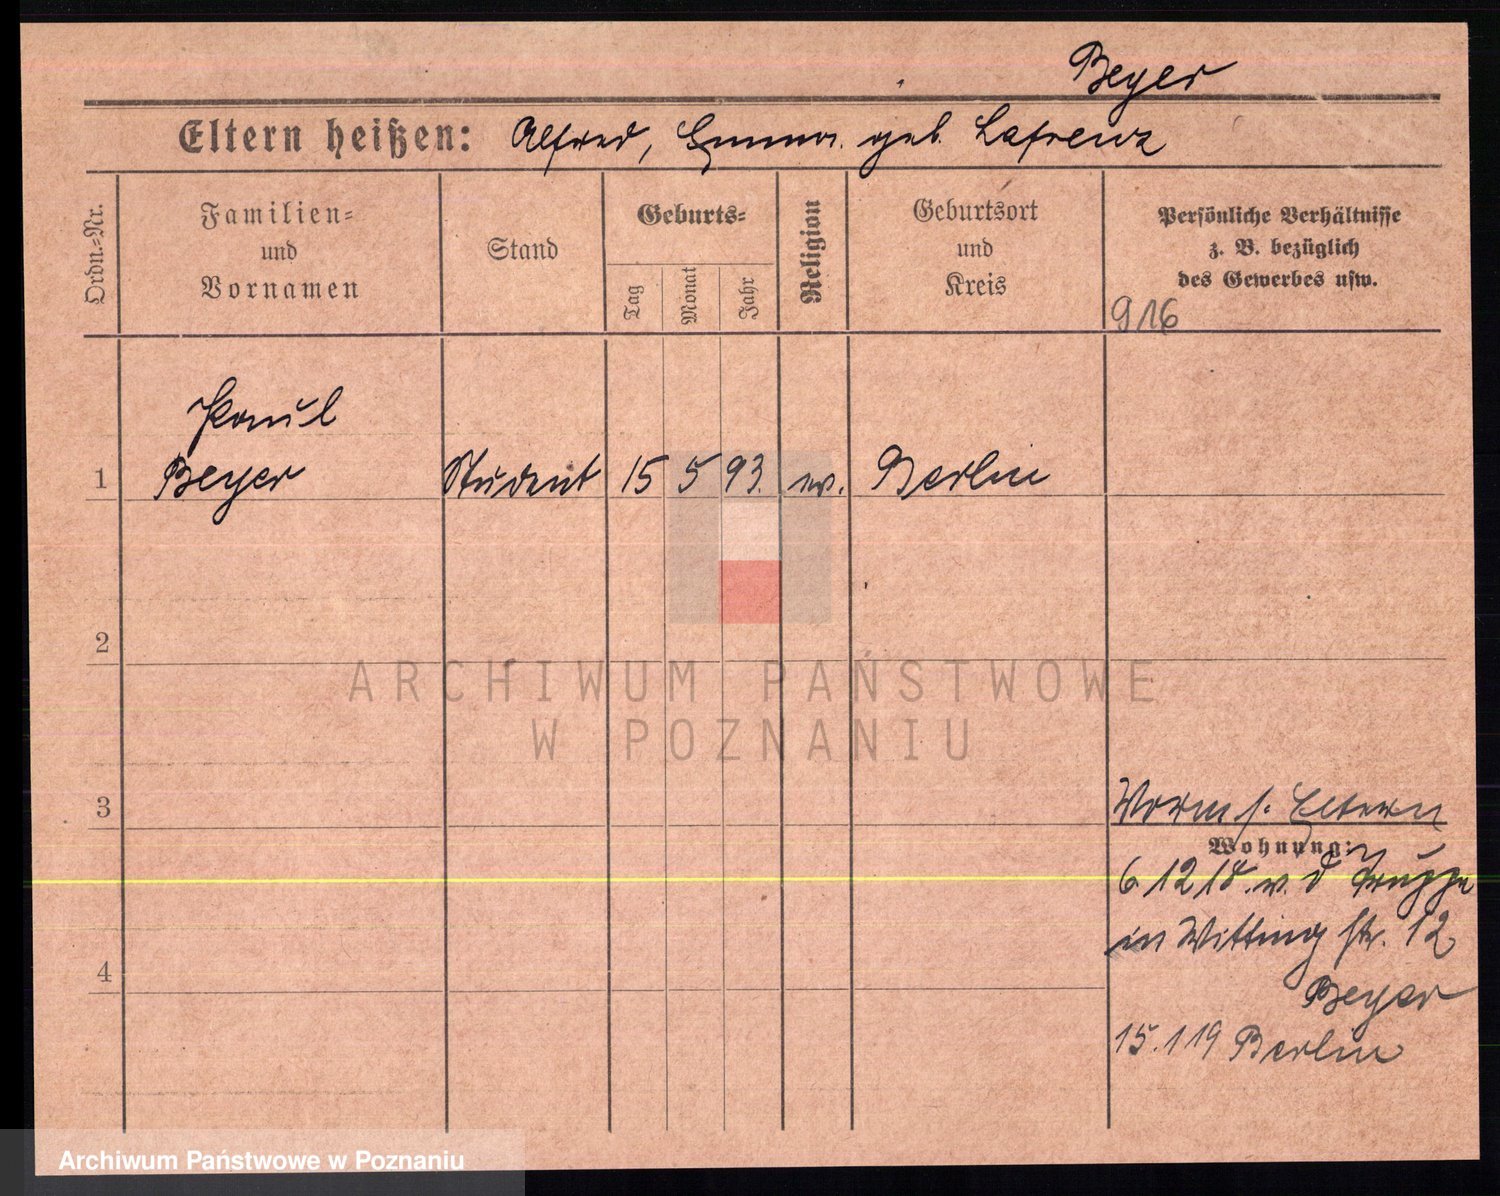 Beyer
Eltern heißen: Alfred, Emma. geb. Lafrenz
Ordn.=Nr.
Familien=
und
Vornamen
Stand
Geburts=
Tag
Monat
Jahr
Religion
Geburtsort
und
Kreis
Persönliche Verhältnisse
z. B. bezüglich
des Gewerbes usw.
916
Paul
1 Beyer Student 15 5 93. ev. Berlin
2
ARCHIWUM PAŃSTWOWE
W POZNANIU
3
s. Eltern
Wohnung:
6 12 18. v. d Truppe
in Witting str. 12
4
Beyer
15.1 19 Berlin
Archiwum Państwowe w Poznaniu